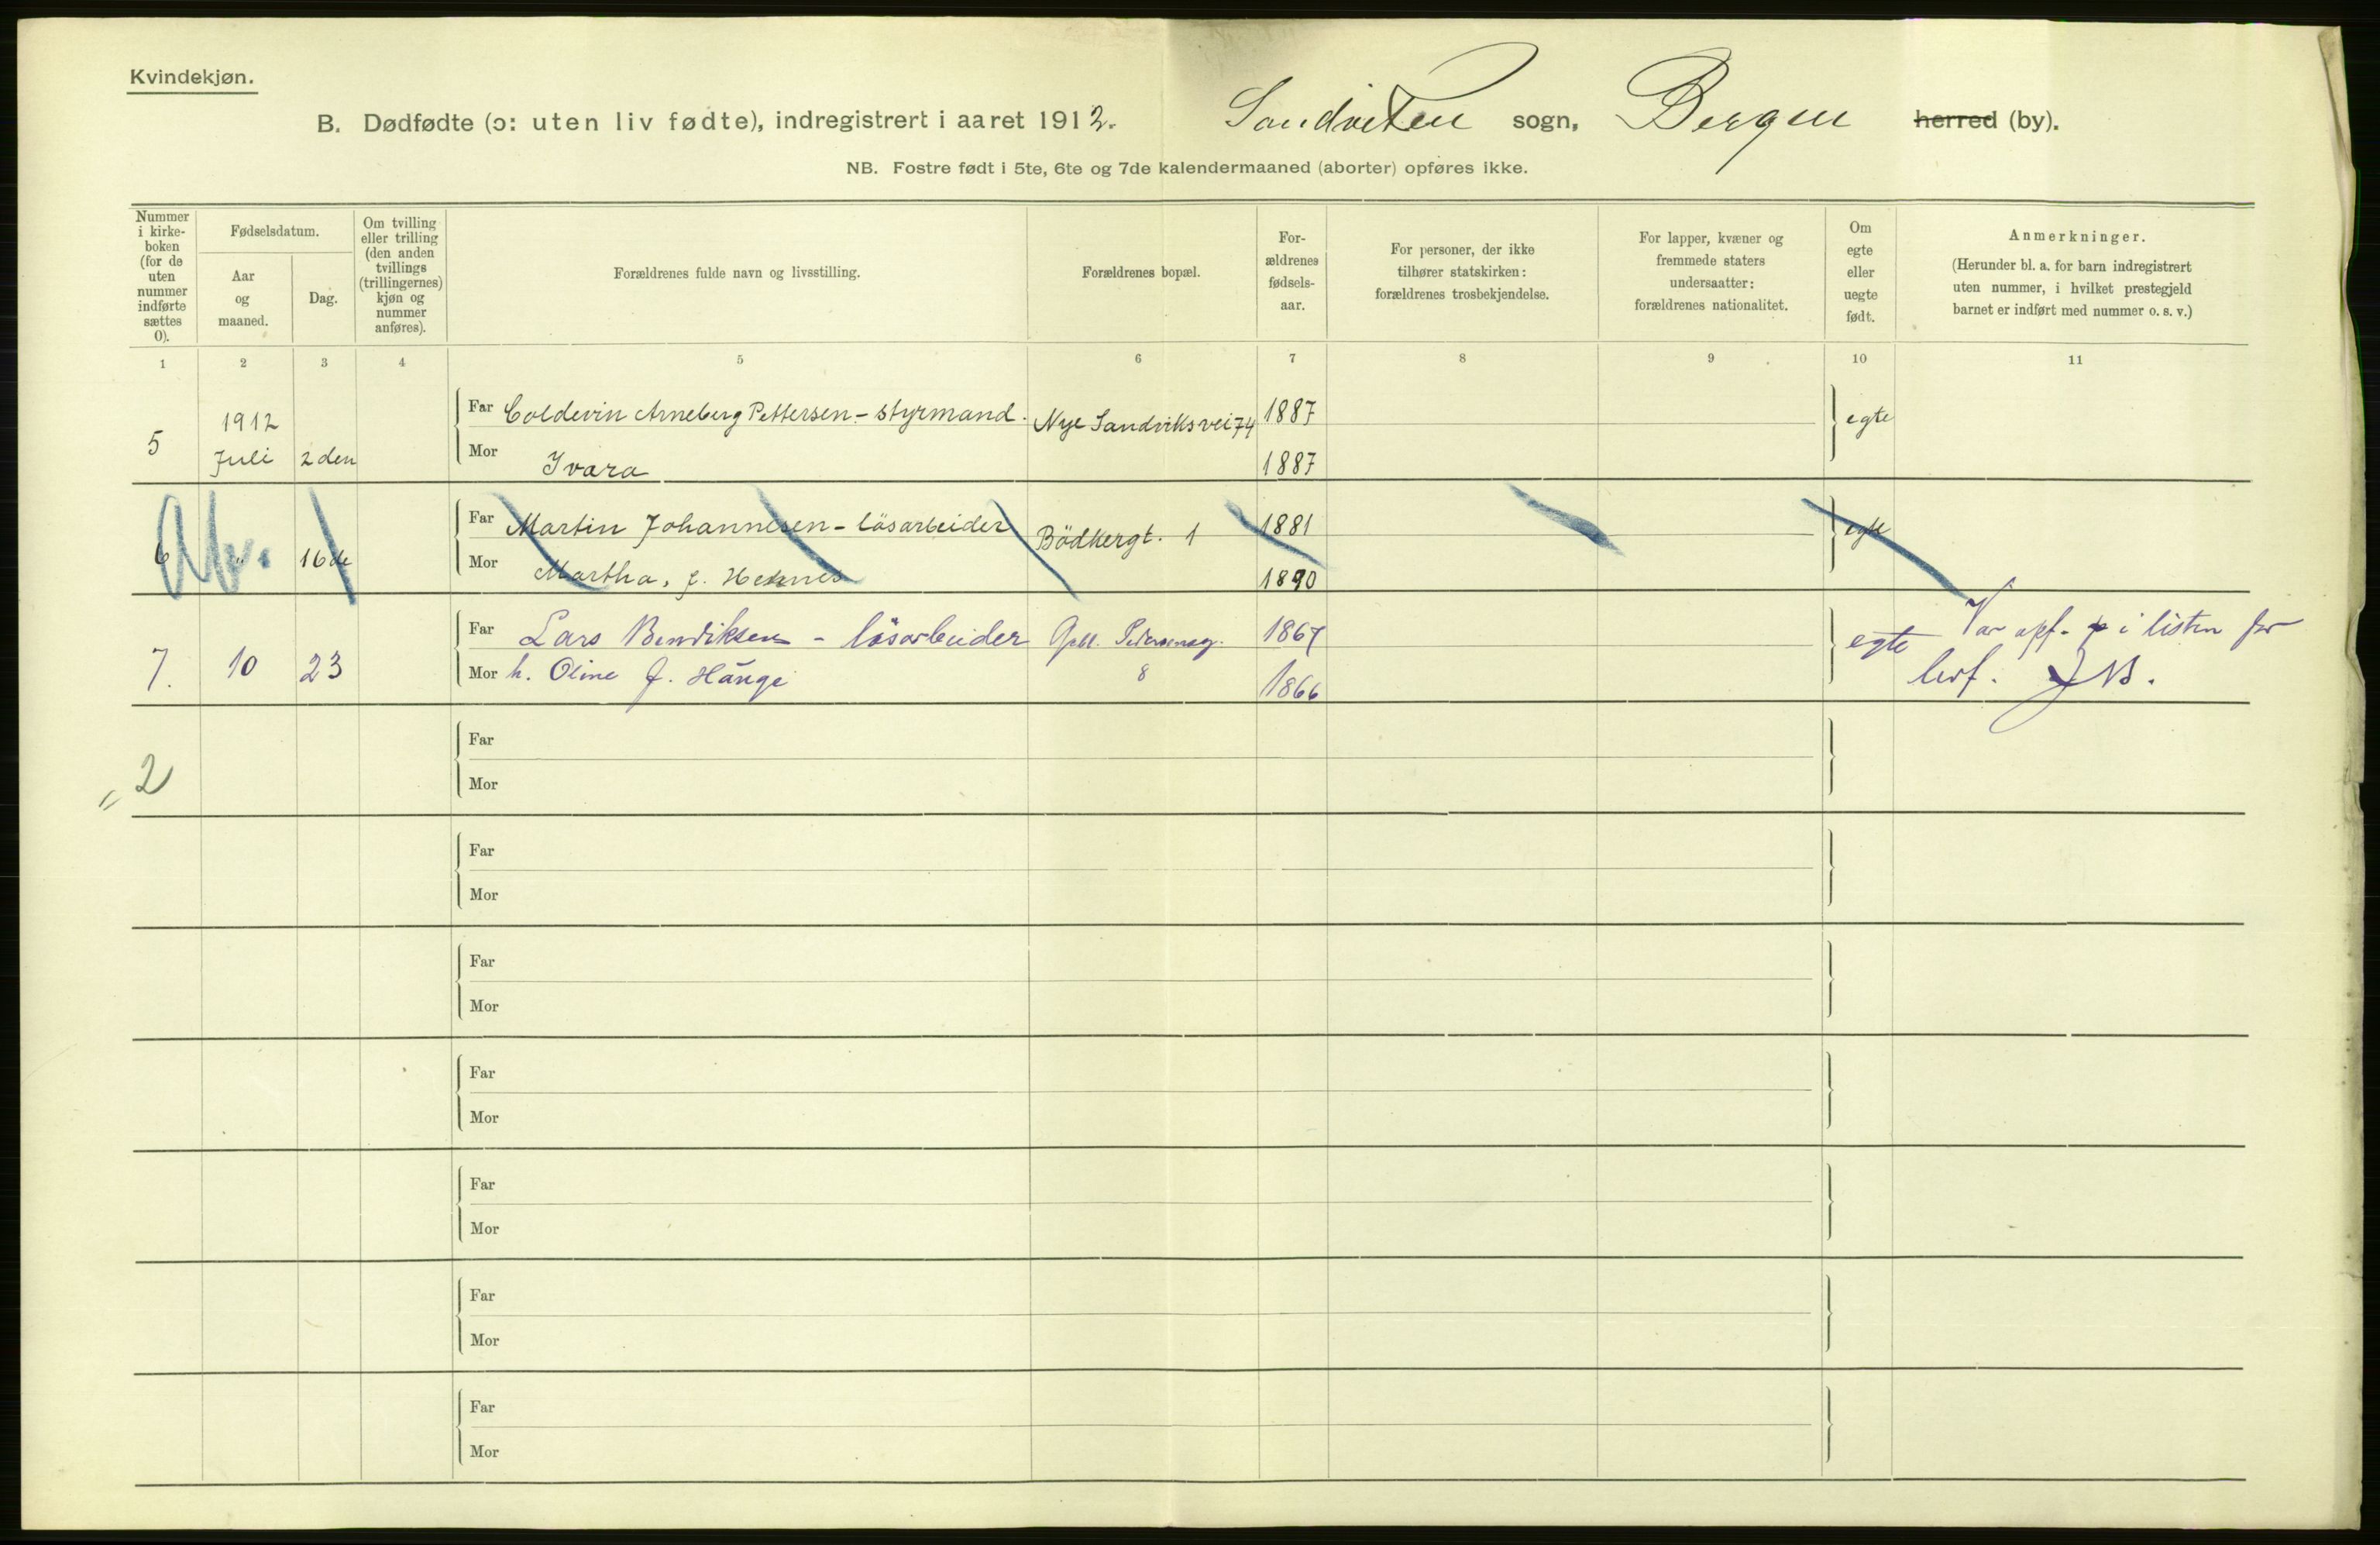 Kvindekjøn.
B. Dødfødte (ɔ: uten liv fødte), indregistrert i aaret 1912. Sandviken sogn, Bergen herred (by).
NB. Fostre født i 5te, 6te og 7de kalendermaaned (aborter) opføres ikke.
Nummer i kirke-boken (for de uten nummer indførte sættes 0).
Fødselsdatum.
Aar og maaned.
Dag.
Om tvilling eller trilling (den anden tvillings (trillingernes) kjøn og nummer anføres).
Forældrenes fulde navn og livsstilling.
Forældrenes bopæl.
For-ældrenes fødsels-aar.
For personer, der ikke tilhører statskirken: forældrenes trosbekjendelse.
For lapper, kvæner og fremmede staters undersaatter: forældrenes nationalitet.
Om egte eller uegte født.
Anmerkninger.
(Herunder bl. a. for barn indregistrert uten nummer, i hvilket prestegjeld barnet er indført med nummer o. s. v.)
1 2 3 4 5 6 7 8 9 10 11
5 1912 Juli 2den
Far Coldevin Arneberg Pettersen - styrmand. Nye Sandviksvei 74 1887 egte
Mor Ivara 1887
6 " 16de
Far Martin Johannesen - løsarbeider Bödkergt. 1 1881 egte
Mor Martha, f. 1890
7. 10 23
Far Lars Bendiksen - løsarbeider 1867 egte Var opf. i listen for
Mor h. Oline f. Hauge 8 1866 levf.
= 2
Far
Mor
Far
Mor
Far
Mor
Far
Mor
Far
Mor
Far
Mor
Far
Mor